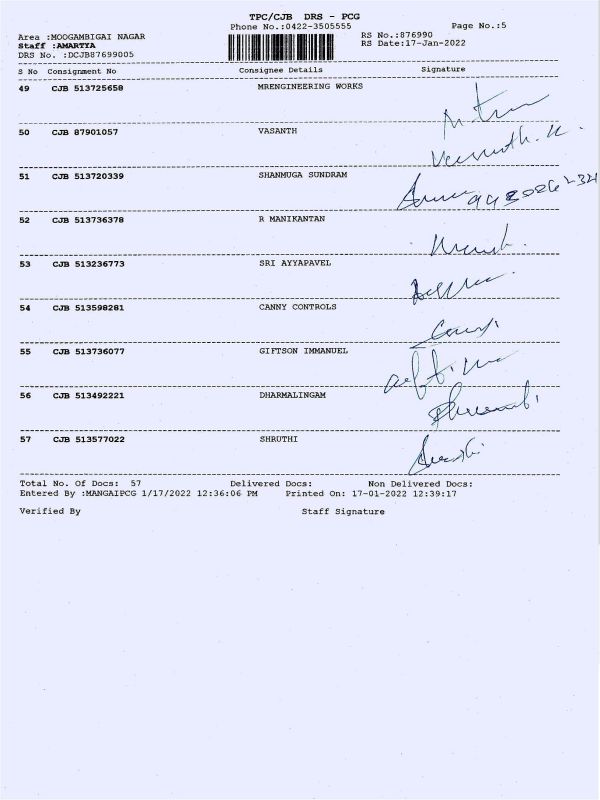 TPC/CJB DRS - PCG
Phone No.:0422-3505555
Page No.:5
Area :MOOGAMBIGAI NAGAR
RS No.:876990
Staff :AMARTYA
RS Date:17-Jan-2022
DRS No. :DCJB87699005
S No Consignment No Consignee Details Signature
49 CJB 513725658 MRENGINEERING WORKS
50 CJB 87901057 VASANTH
51 CJB 513720339 SHANMUGA SUNDRAM
52 CJB 513736378 R MANIKANTAN
53 CJB 513236773 SRI AYYAPAVEL
54 CJB 513598281 CANNY CONTROLS
55 CJB 513736077 GIFTSON IMMANUEL
56 CJB 513492221 DHARMALINGAM
57 CJB 513577022 SHRUTHI
Total No. Of Docs: 57 Delivered Docs: Non Delivered Docs:
Entered By :MANGAIPCG 1/17/2022 12:36:06 PM Printed On: 17-01-2022 12:39:17
Verified By Staff Signature